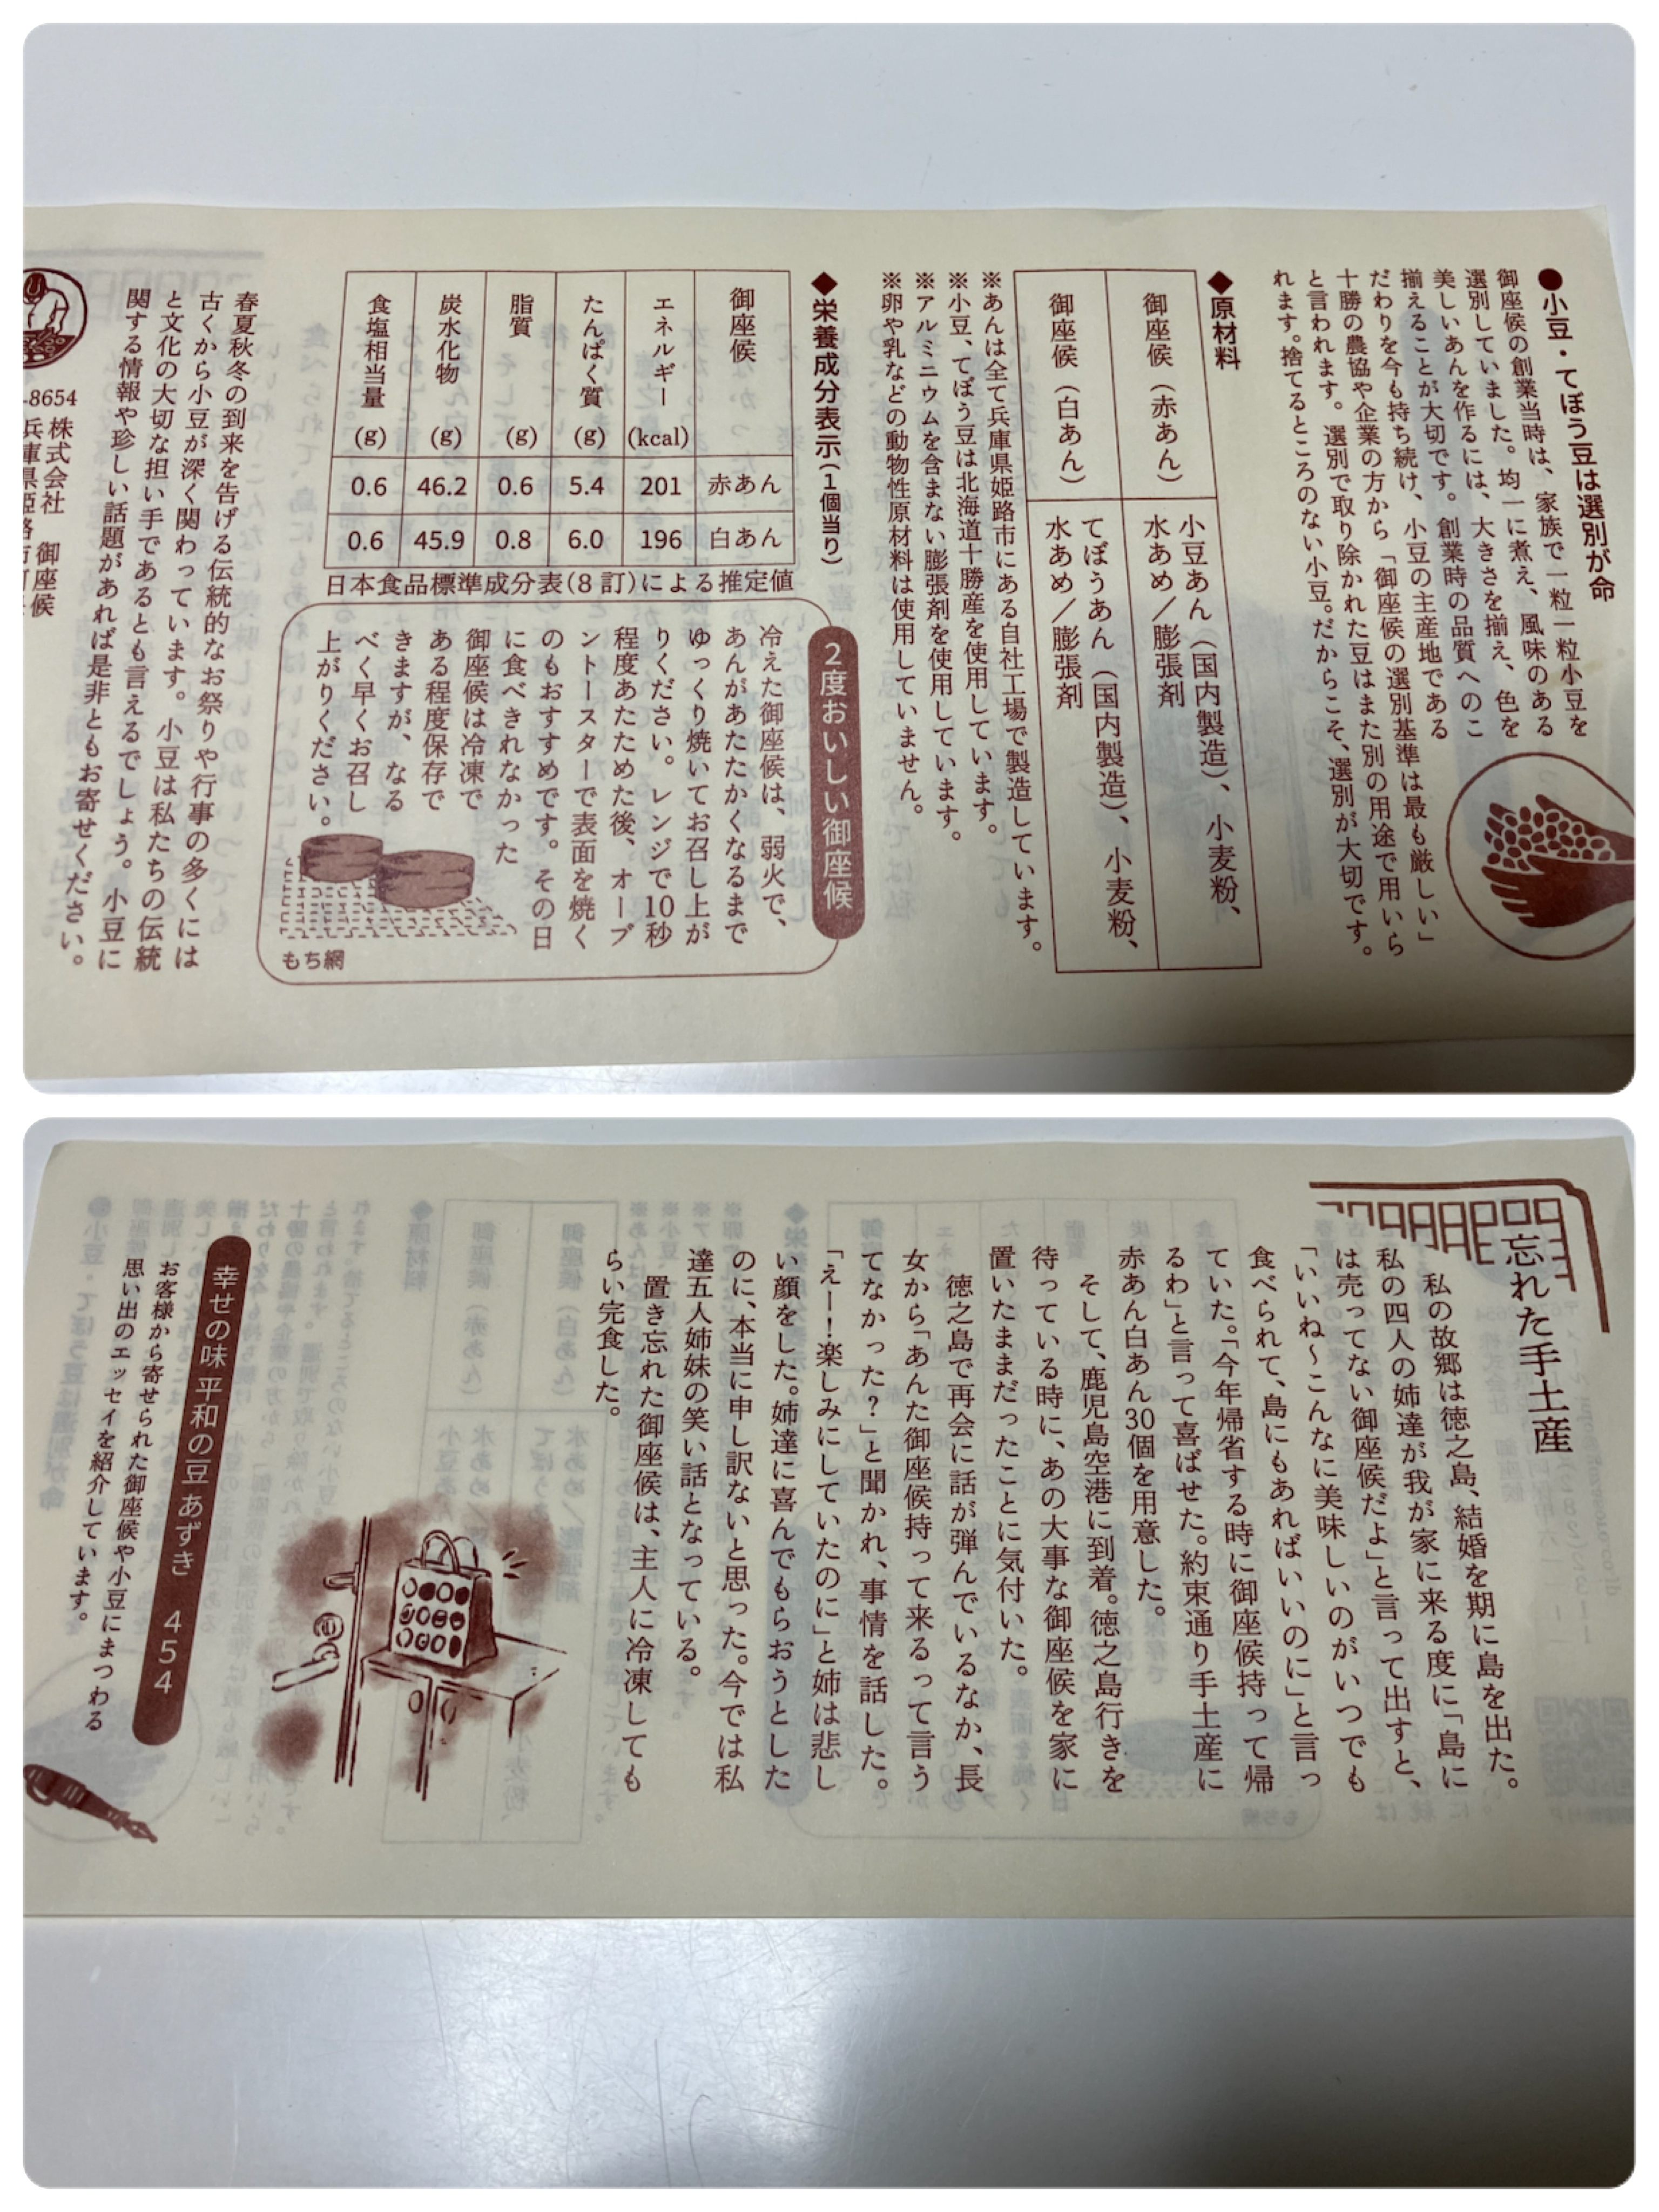 ●小豆・てぼう豆は選別が命
御座候の創業当時は、家族で一粒一粒小豆を
選別していました。均一に煮え、風味のある
美しいあんを作るには、大きさを揃え、色を
揃えることが大切です。創業時の品質へのこ
だわりを今も持ち続け、小豆の主産地である
十勝の農協や企業の方から「御座候の選別基準は最も厳しい」
と言われます。選別で取り除かれた豆はまた別の用途で用いら
れます。捨てるところのない小豆。だからこそ、選別が大切です。
◆原材料
御座候（赤あん）
小豆あん（国内製造）、小麦粉、
水あめ／膨張剤
御座候（白あん）
てぼうあん（国内製造）、小麦粉、
水あめ／膨張剤
※あんは全て兵庫県姫路市にある自社工場で製造しています。
※小豆、てぼう豆は北海道十勝産を使用しています。
※アルミニウムを含まない膨張剤を使用しています。
※卵や乳などの動物性原材料は使用していません。
◆栄養成分表示（1個当り）
御座候 赤あん 白あん
エネルギー (kcal) 201 196
たんぱく質 (g) 5.4 6.0
脂質 (g) 0.6 0.8
炭水化物 (g) 46.2 45.9
食塩相当量 (g) 0.6 0.6
日本食品標準成分表(8訂)による推定値
2度おいしい御座候
冷えた御座候は、弱火で、
あんがあたたかくなるまで
ゆっくり焼いてお召し上が
りください。レンジで10秒
程度あたためた後、オーブ
ントースターで表面を焼く
のもおすすめです。その日
に食べきれなかった
御座候は冷凍で
ある程度保存で
きますが、なる
べく早くお召し
上がりください。
もち網
春夏秋冬の到来を告げる伝統的なお祭りや行事の多くには
古くから小豆が深く関わっています。小豆は私たちの伝統
と文化の大切な担い手であるとも言えるでしょう。小豆に
関する情報や珍しい話題があれば是非ともお寄せください。
-8654
株式会社 御座候
兵庫県姫路市
忘れた手土産
私の故郷は徳之島、結婚を期に島を出た。
私の四人の姉達が我が家に来る度に「島に
は売ってない御座候だよ」と言って出すと、
「いいね～こんなに美味しいのがいつでも
食べられて、島にもあればいいのに」と言っ
ていた。「今年帰省する時に御座候持って帰
るわ」と言って喜ばせた。約束通り手土産に
赤あん白あん30個を用意した。
そして、鹿児島空港に到着。徳之島行きを
待っている時に、あの大事な御座候を家に
置いたままだったことに気付いた。
徳之島で再会に話が弾んでいるなか、長
女から「あんた御座候持って来るって言う
てなかった？」と聞かれ、事情を話した。
「えー！楽しみにしていたのに」と姉は悲し
い顔をした。姉達に喜んでもらおうとした
のに、本当に申し訳ないと思った。今では私
達五人姉妹の笑い話となっている。
置き忘れた御座候は、主人に冷凍しても
らい完食した。
幸せの味 平和の豆 あずき 454
お客様から寄せられた御座候や小豆にまつわる
思い出のエッセイを紹介しています。